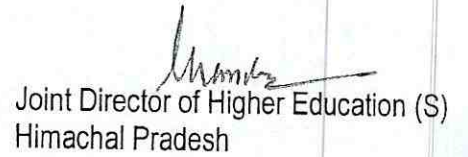 Joint Director of Higher Education (S)
Himachal Pradesh